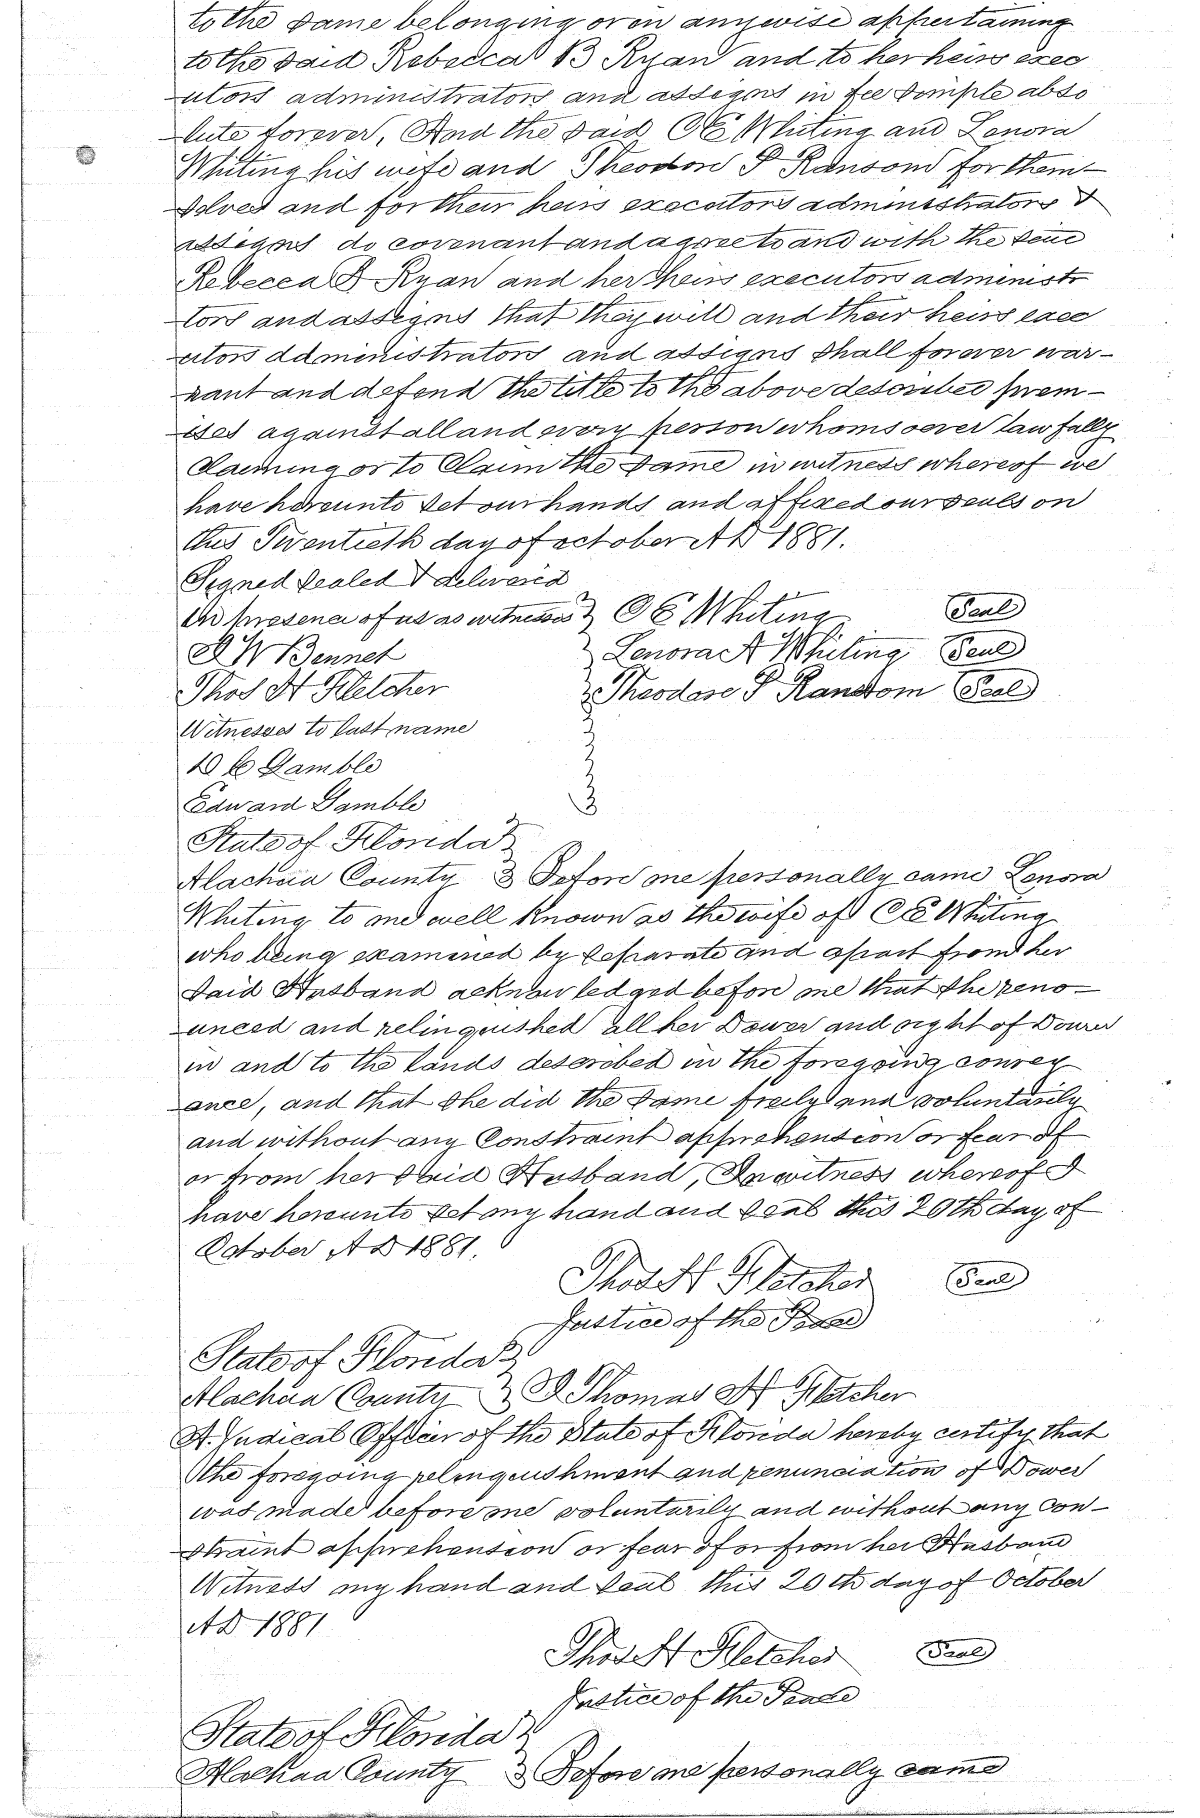 to the same belonging or in anywise appertaining
to the said Rebecca B Ryan and to her heirs exec
utors administrators and assigns in fee simple abso
lute forever, And the said O E Whiting and Lenora
Whiting his wife and Theodore P Ransom for them-
selves and for their heirs executors administrators &
assigns do covenant and agree to and with the said
Rebecca B Ryan and her heirs executors administr
tors and assigns that they will and their heirs exec
utors administrators and assigns shall forever war-
rant and defend the title to the above described prem-
ises against all and every person whomsoever lawfully
Claiming or to Claim the same in witness whereof we
have hereunto set our hands and affixed our seals on
this Twentieth day of october A D 1881.
Signed Sealed & delivered
in presence of us as witnesses } O E Whiting Seal
S W Bennet } Lenora A Whiting Seal
Thos H Fletcher } Theodore P Ransom Seal
Witnesses to last name
D C Gamble
Edward Gamble
State of Florida }
Alachua County } Before me personally came Lenora
Whiting to me well known as the wife of O E Whiting
who being examined by separate and apart from her
said Husband acknowledged before me that she reno-
unced and relinquished all her Dower and right of Dower
in and to the lands described in the foregoing convey
ance, and that she did the same freely and voluntarily
and without any Constraint apprehension or fear of
or from her said Husband, In witness whereof I
have hereunto set my hand and seal this 20th day of
October A D 1881.
Thos H Fletcher Seal
Justice of the Peace
State of Florida }
Alachua County } I Thomas H Fletcher
A. Judical Officer of the State of Florida hereby certify that
the foregoing relinquishment and renunciation of Dower
was made before me voluntarily and without any con-
straint apprehension or fear of or from her Husband
Witness my hand and seal this 20th day of October
A D 1881
Thos H Fletcher Seal
Justice of the Peace
State of Florida }
Alachua County } Before me personally came